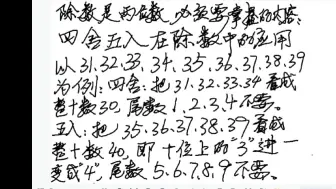 除数是两位数,必须要掌握的内容:
四舍五入在除数中的应用
以31.32.33.34.35.36.37.38.39
为例:四舍:把31.32.33.34看成
整十数30,尾数1.2.3.4不要。
五入:把35.36.37.38.39看成
整十数40,即十位上的"3"进一
变成"4",尾数5.6.7.8.9不要。